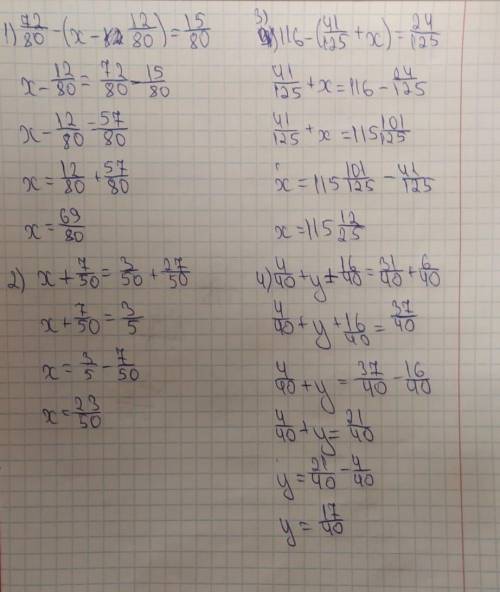 1) 72/80 - (x - 12/80) = 15/80
x - 12/80 = 72/80 - 15/80
x - 12/80 = 57/80
x = 12/80 + 57/80
x = 69/80
2) x + 7/50 = 3/50 + 27/50
x + 7/50 = 3/5
x = 3/5 - 7/50
x = 23/50
3) 116 - (41/125 + x) = 24/125
41/125 + x = 116 - 24/125
41/125 + x = 115 101/125
x = 115 101/125 - 41/125
x = 115 12/25
4) 4/40 + y + 16/40 = 31/40 + 6/40
4/40 + y + 16/40 = 37/40
4/40 + y = 37/40 - 16/40
4/40 + y = 21/40
y = 21/40 - 4/40
y = 17/40